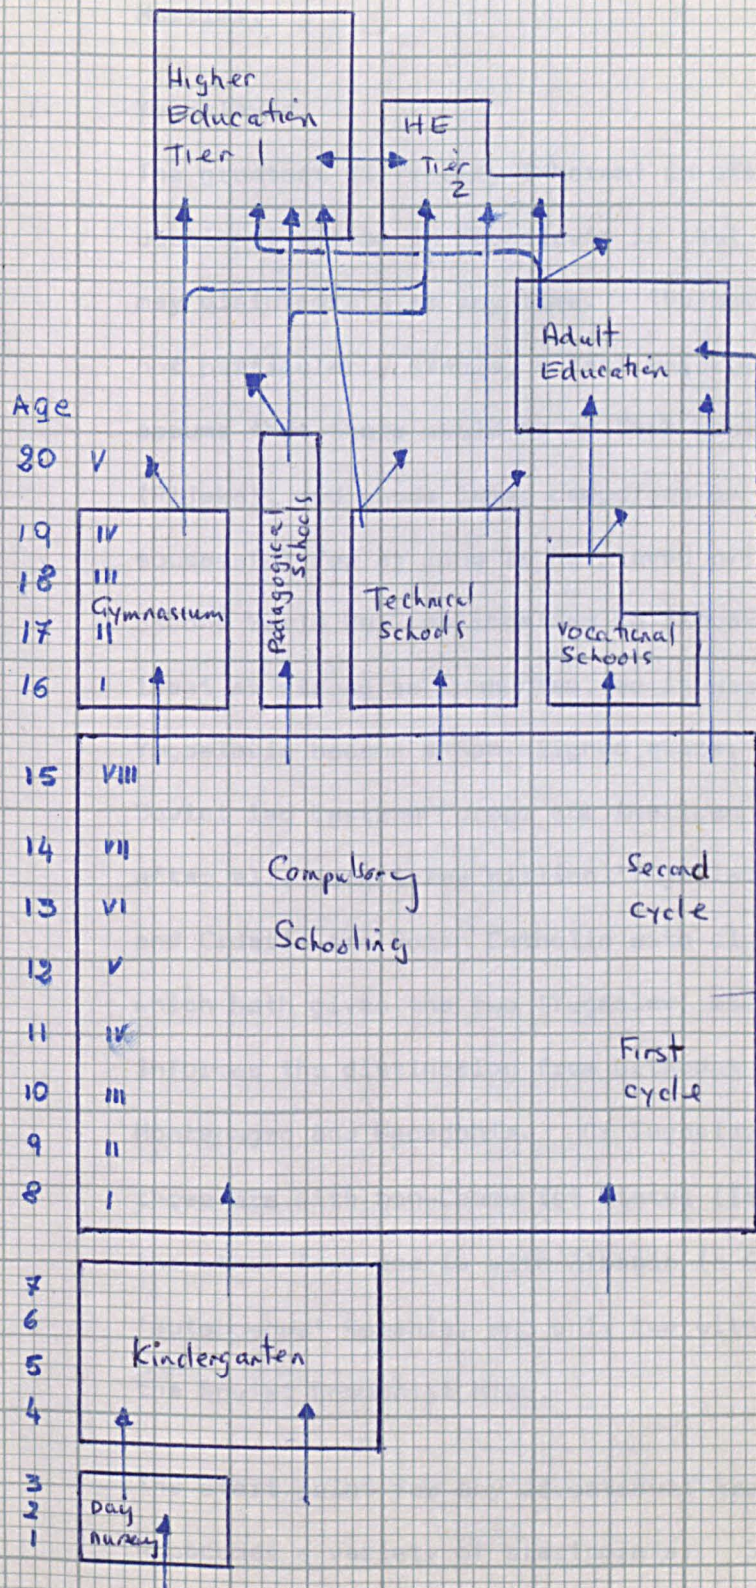 Higher
Education
Tier 1
HE
Tier
2
Adult
Education
Age
20 V
19 IV
18 III
17 II
16 I
Gymnasium
Pedagogical
Schools
Technical
Schools
Vocational
Schools
15 VIII
14 VII
13 VI
12 V
11 IV
10 III
9 II
8 I
Compulsory
Schooling
Second
cycle
First
cycle
7
6
5
4
Kindergarten
3
2
1
Day
nursey